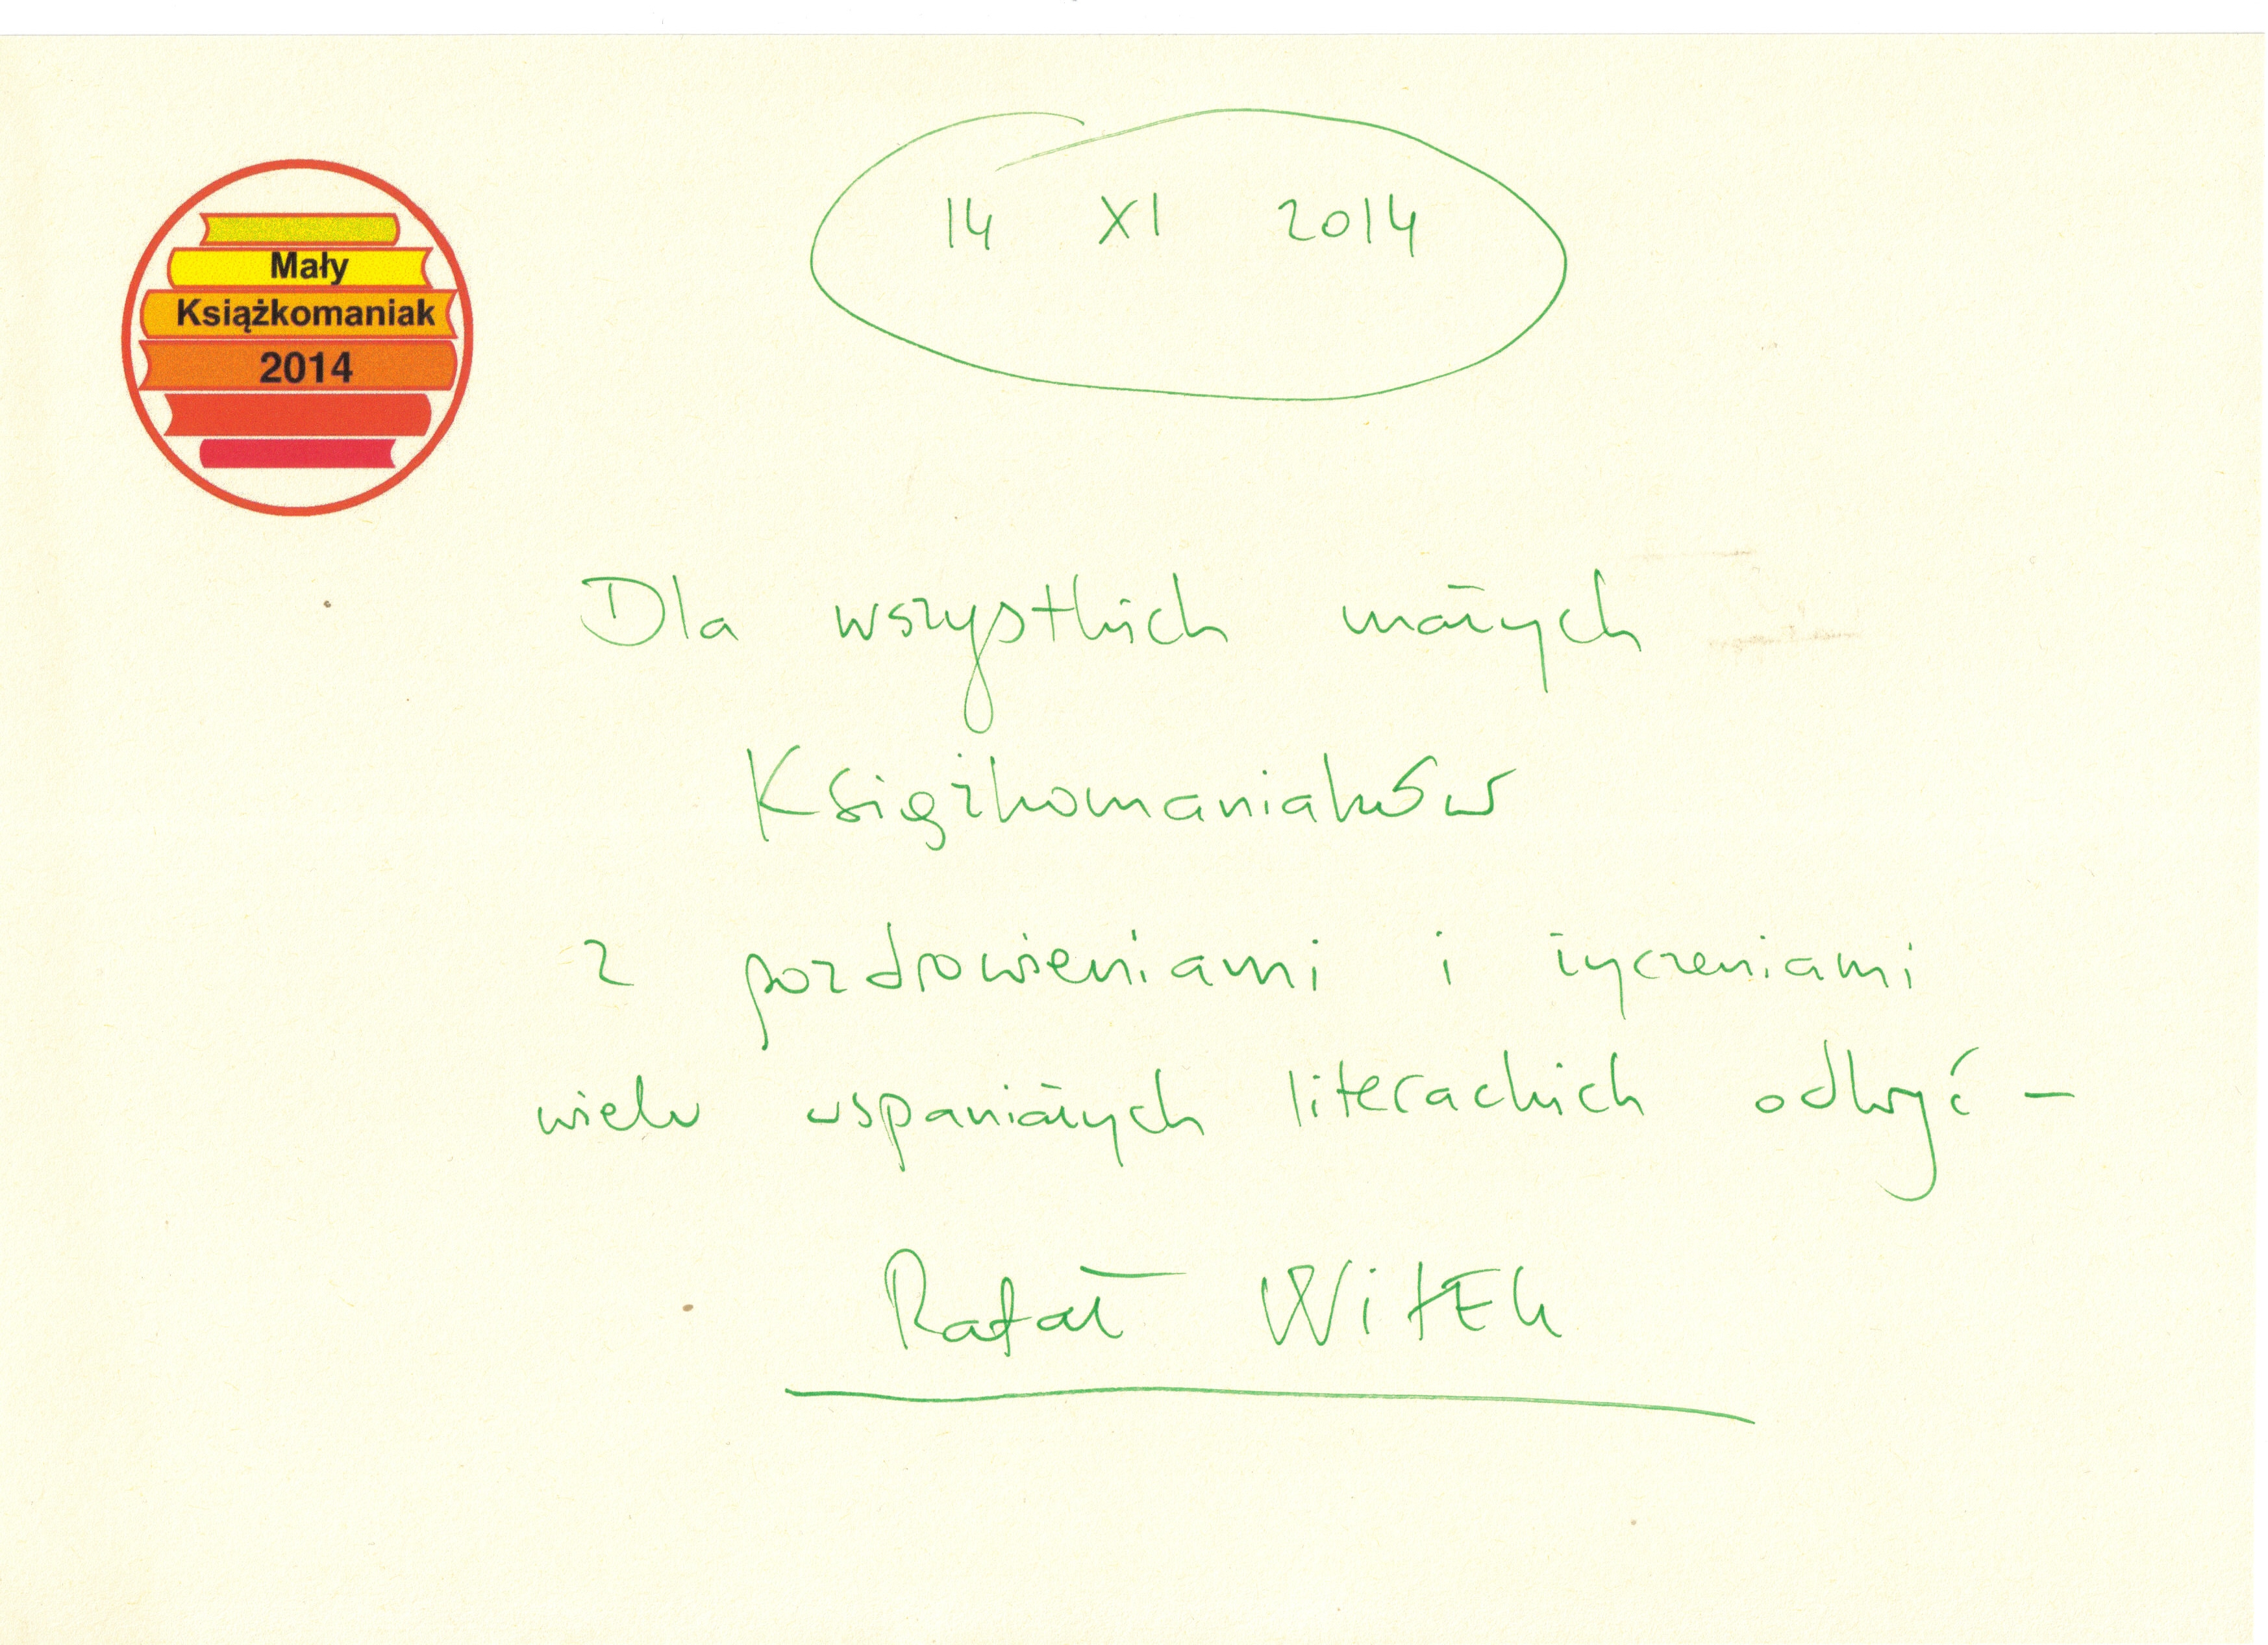 Mały
Książkomaniak
2014
14 XI 2014
Dla wszystkich małych
Książkomaniaków
z pozdrowieniami i życzeniami
wielu wspaniałych literackich odkryć –
Rafał WitEk